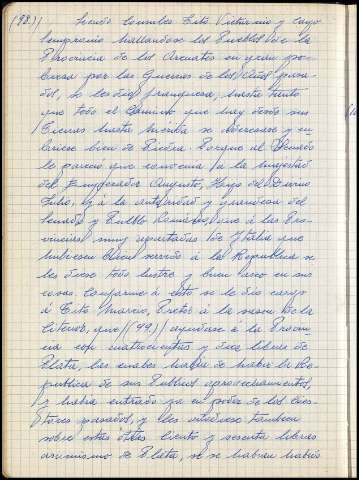 (98)) Siendo Consules Tito Victurino y cayo
Sempronio hallandose los Pueblos de la
Provincia de los Arcanos en gran po-
breza por las Guerras de los Años pasa-
dos, se les dio franqueza, hasta tanto
que todo el Camino que hay desde sus
tierras hasta Merida se aderezase y hi-
ciese bien de Piedra. Porque al Senado
le pareció que convenia a la magestad
del Emperador Augusto, Hijo del Divino
Julio, y á la autoridad y grandeza del
Senado y Pueblo Romano, que á las Pro-
vincias muy apartadas de Italia que
hubiesen bien servido á la Republica se
les diese todo lustre y buen aseo en sus
cosas. Conforme á esto se le dio cargo
á Tito Marcio, Pretor á la sazon de la
Citerior, que (99)) ayudase á la Provin-
cia con cuatrocientas y diez libras de
Plata, las cuales habia de haber la Re-
publica de sus Publicos aprovechamientos,
y habia entrado ya en poder de los Ques-
tores pasados, y les añadiese tambien
sobre estas otras ciento y sesenta libras
asimismo de Plata, que se habian habido